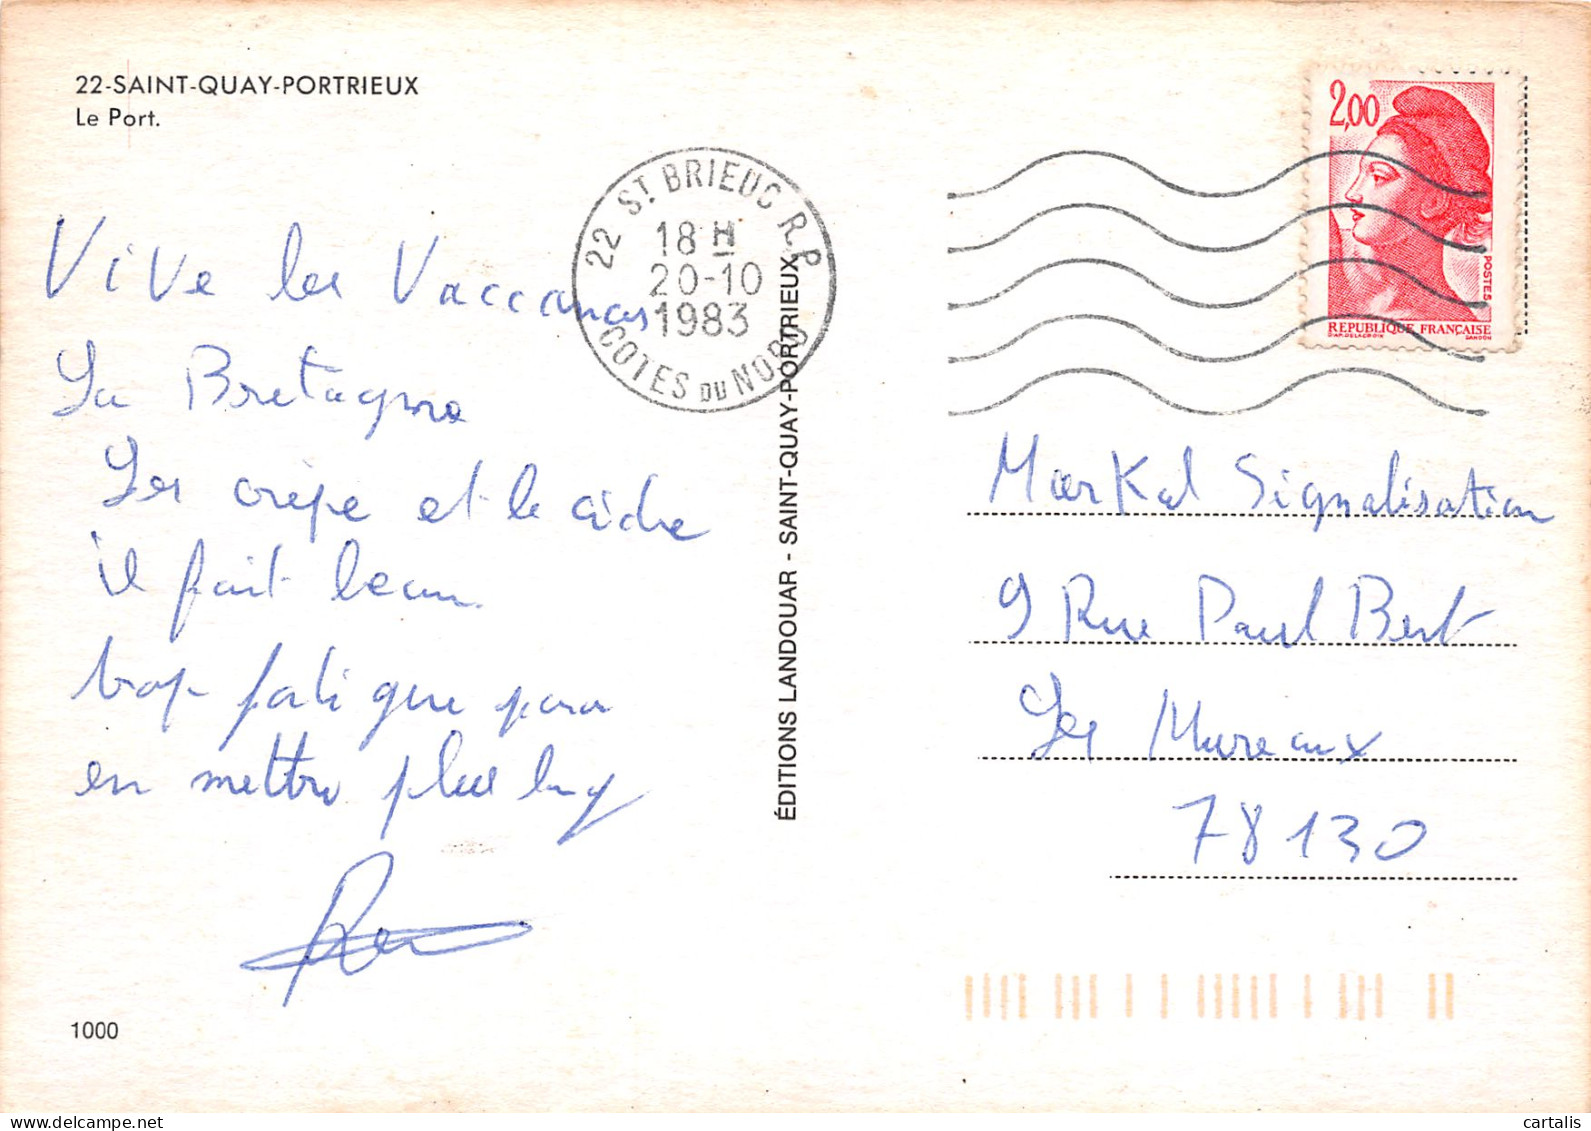 22-SAINT-QUAY-PORTRIEUX
Le Port.
Vive les Vaccances
La Bretagne
Les crèpe et le cidre
il fait beau
trop fatigue pour
en mettre plus long
1000
22 ST BRIEUC R.P.
18 H
20-10
1983
COTES DU NORD
ÉDITIONS LANDOUAR - SAINT-QUAY-PORTRIEUX
2,00
POSTES
RÉPUBLIQUE FRANÇAISE
D'AP. DELACROIX GANDON
Markal Signalisation
9 Rue Paul Bert
Les Mureaux
78130
cartalis